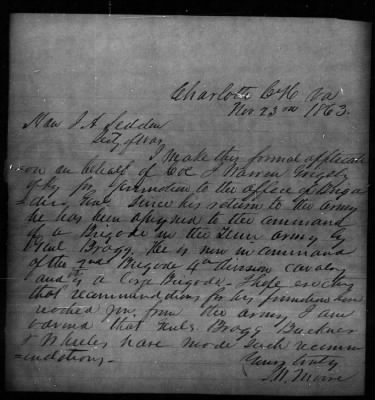 Charlotte C.H. Va
Nov 23rd 1863.
Hon. J. A. Seddon
Secty of War
I make this formal applicati
on on behalf of Col J Warren Grigsby
of Ky for promotion to the office of Briga
dier Genl. Since his return to the army
he has been assigned to the command
of a Brigade in the Tenn army by
Genl Bragg. He is now in command
of the 2nd Brigade 4th division cavalry
and is a Brigade. These
that recommendations for his promotion have
reached you from the army. I am
advised that Genls Bragg Buckner
& Wheeler have made such recomm
endations.
Yours truly